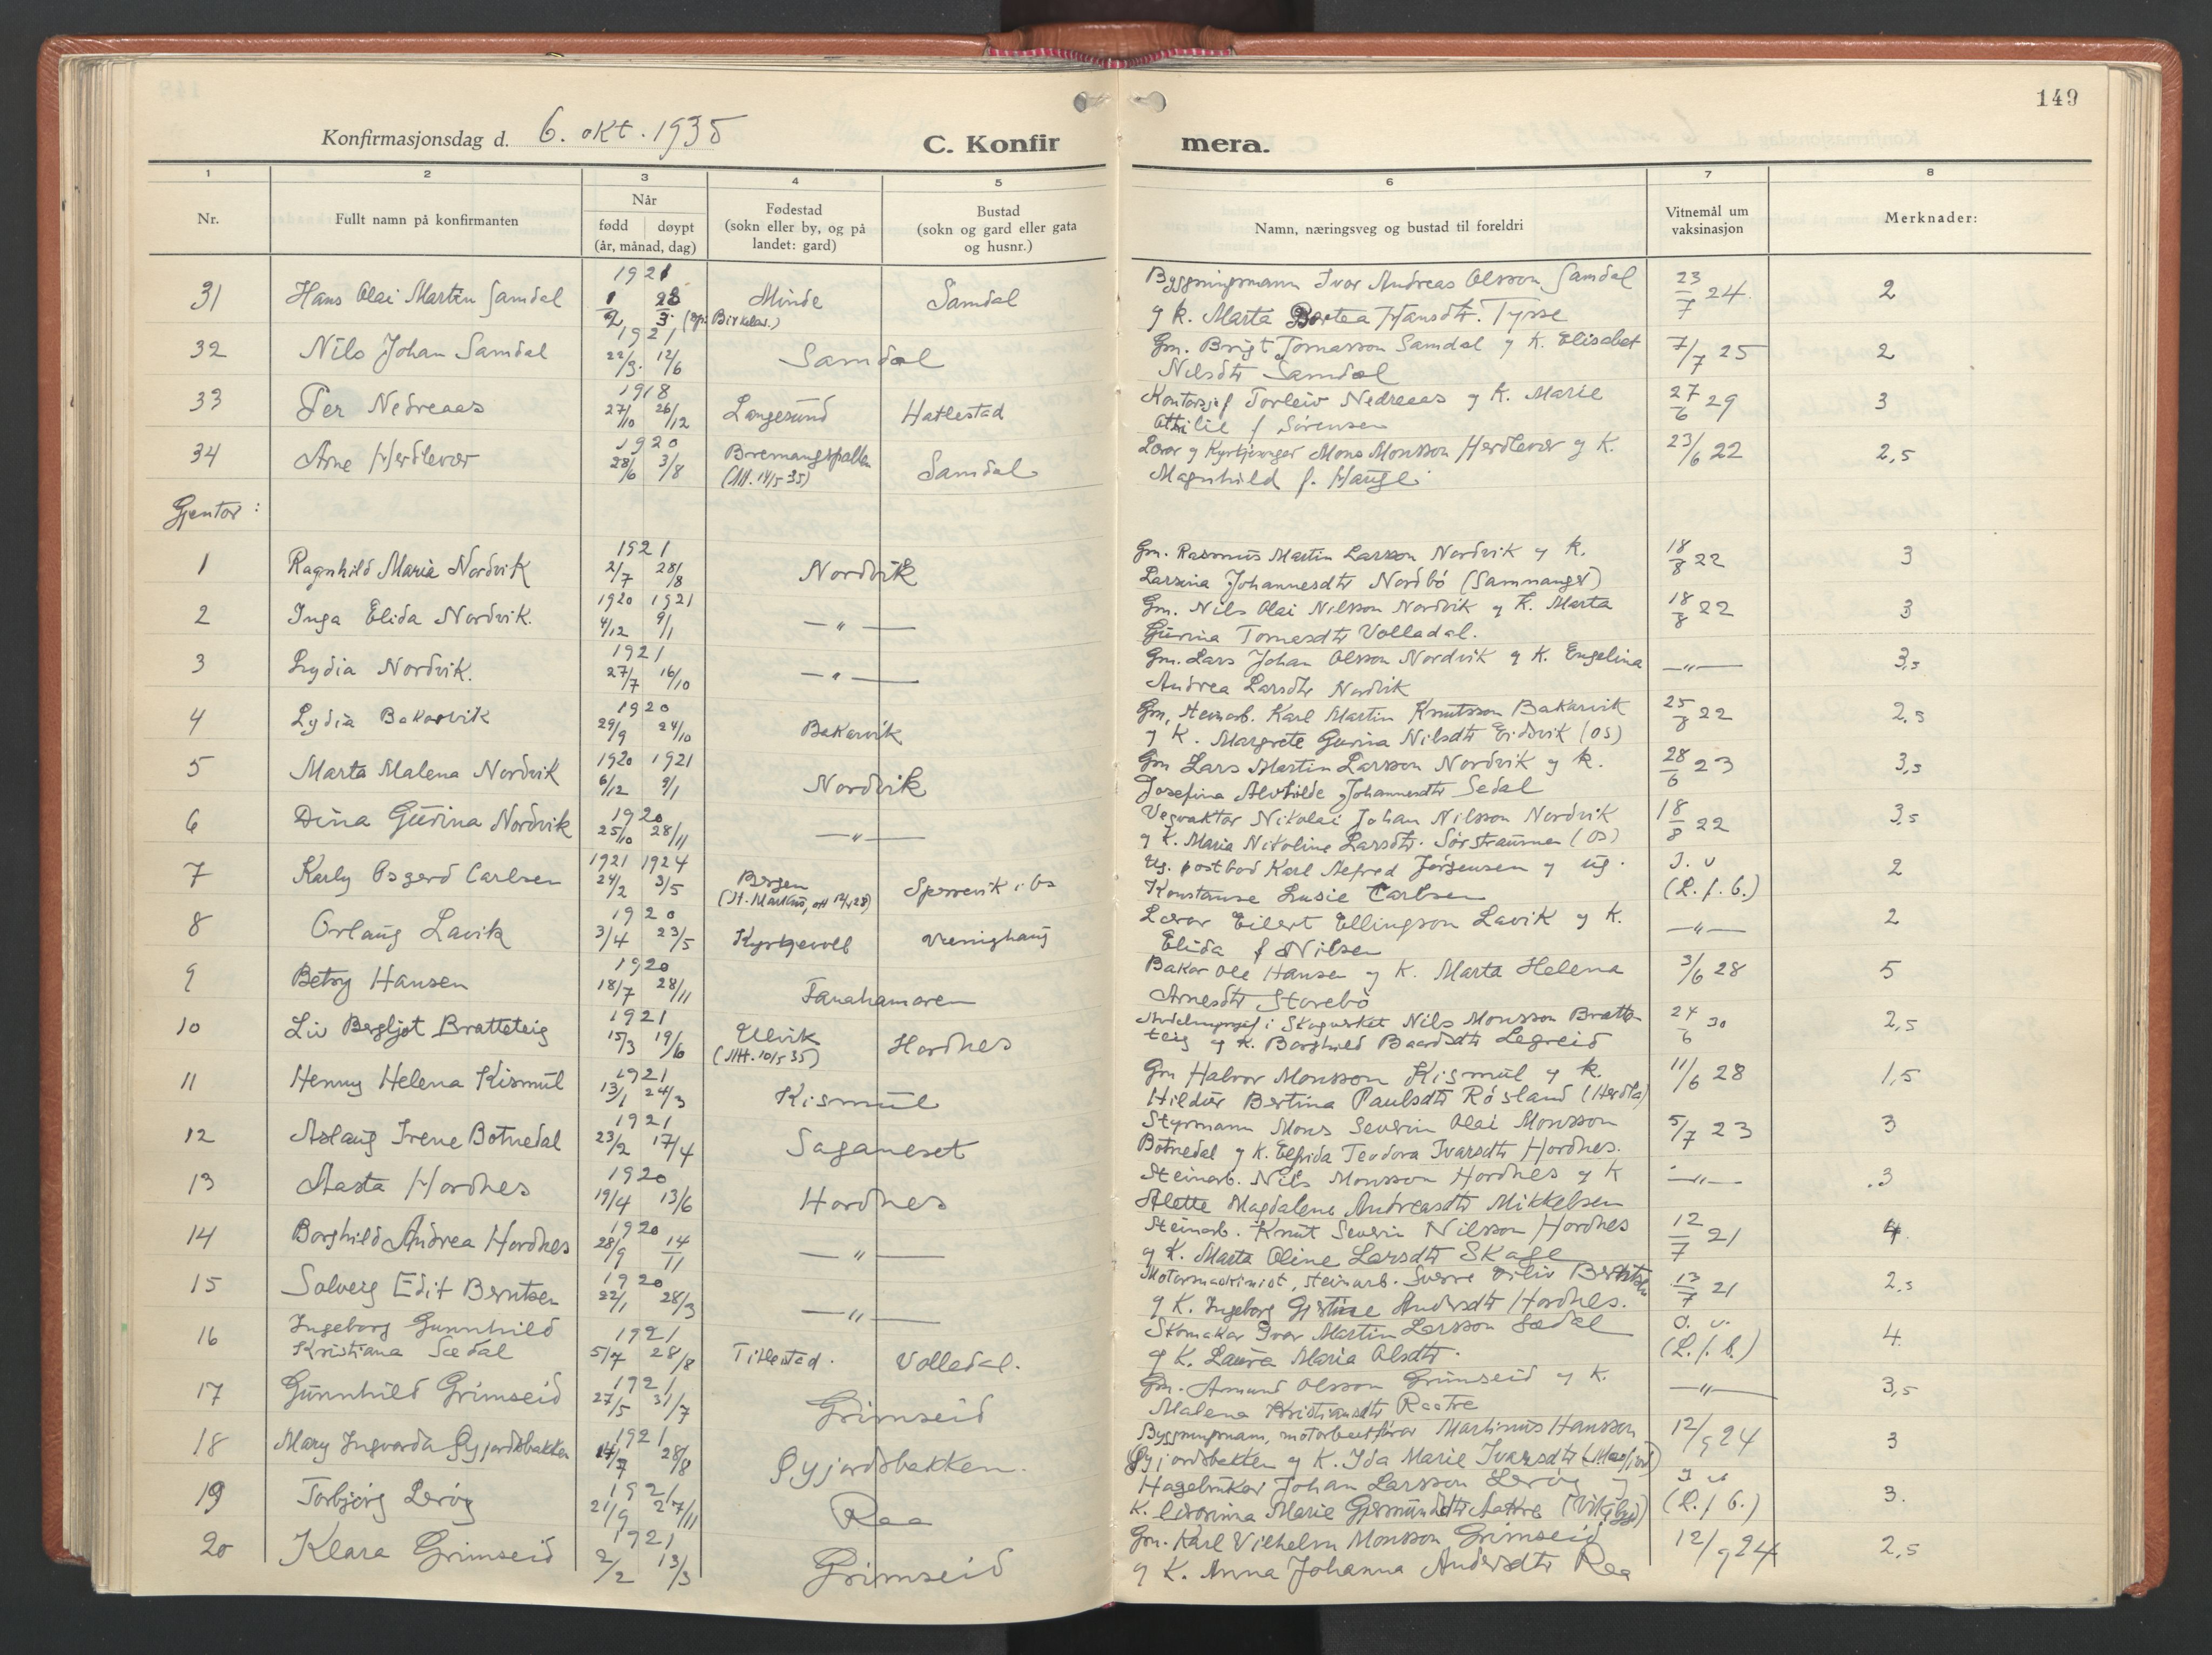 149
Konfirmasjonsdag d. 6. okt. 1935
C. Konfir mera.
1 2 3 4 5 6 7 8
Nr. Fullt namn på konfirmanten Når fødd døypt (år, månad, dag) Fødestad (sokn eller by, og på landet: gard) Bustad (sokn og gard eller gata og husnr.) Namn, næringsveg og bustad til foreldri Vitnemål um vaksinasjon Merknader:
31 Hans Olai Martin Samdal 1921 1/2 28/3 Minde (Birkelun.) Samdal Bygningsmann Ivar Andreas Olsson Samdal 23/7 24 2
g k. Marta Bertea Hansdtr. Tysse
32 Nils Johan Samdal 1921 22/3 12/6 Samdal Gm. Brigt Tomasson Samdal g K. Elisabet 7/7 25 2
Nilsdtr Samdal
33 Per Nedreaas 1918 27/10 26/12 Langesund Hatlestad Kontorsjef Torleiv Nedreaas g K. Marie 27/6 29 3
Ottilie f Sørensen
34 Arne Herdlevær 1920 28/6 3/8 Bremangspollen (Att. 14/5 35) Samdal Lærar g Kyrkjesongar Mons Monsson Herdlevær g K. 23/6 22 2,5
Magnhild f. Haugli
Gjentor:
1 Ragnhild Maria Nordvik 1921 2/7 28/8 Nordvik Gm. Rasmus Martin Larsson Nordvik g k. 18/8 22 3
Larsina Johannesdtr Nordbö (Samnanger)
2 Inga Elida Nordvik. 1920 1921 4/12 9/1 —"— Gm. Nils Olai Nilsson Nordvik g K. Marta 18/8 22 3
Gurina Tomasdtr Volladal.
3 Lydia Nordvik. 1921 27/7 16/10 —"— Gm. Lars Johan Olsson Nordvik g K. Engelina —"— 3,5
Andrea Larsdtr Nordvik
4 Lydia Bakarvik 1920 29/9 24/10 Bakarvik Gm, Steinarb. Karl Martin Knutsson Bakarvik 25/8 22 2,5
g K. Margrete Gurina Nilsdtr Eidsvik (OS)
5 Marta Malena Nordvik 1920 1921 6/12 9/1 Nordvik Gm Lars Martin Larsson Nordvik g k. 28/6 23 3,5
Josefina Alvhilde Johannesdtr Sedal
6 Dina Gurina Nordvik 1920 25/10 28/11 —"— Vegvaktar Nikolai Johan Nilsson Nordvik 18/8 22 3,5
g K. Maria Nikoline Larsdtr. Sørstraumen (Os)
7 Karly Osgerd Carlsen 1921 1924 24/2 3/5 Bergen (St. Markus, att) Sperrevik i Os Ug. postbod Karl Alfred Jørgensen g ug. I. v (L. f. b.) 2
Konstanse Lusie Carlsen
8 Orlaug Lavik 1920 3/4 23/5 Kyrkjevoll Lærar Eilert Ellingson Lavik g K. —"— 2
Elida f Nilsen
9 Betsy Hansen 1920 18/7 28/11 Fanahamaren Bakar Ole Hansen g K. Marta Helena 3/6 28 5
Arnesdtr Storebö
10 Liv Bergljot Bratteteig 1921 15/3 19/6 Ulvik (Att. 10/5 35) Hordnes Avdelingssjef i Skogvesket Nils Monsson Bratte- 24/6 30 2,5
teig g K. Borghild Baardsdtr Legreid
11 Henny Helena Kismul 1921 13/1 24/3 Kismul Gm Halvor Monsson Kismul g k. 11/6 28 1,5
Hildur Bertina Paulsdtr Røsland (Herdla)
12 Aslaug Irene Botnedal 1921 23/2 17/4 Saganeset Styrmann Mons Severin Olai Monsson 5/7 23 3
Botnedal g K. Elfrida Teodora Ivarsdtr Hordnes.
13 Aasta Hordnes 1920 19/4 13/6 Hordnes Steinarb. Nils Monsson Hordnes g K —"— 3
Alette Magdalene Andreasdtr Mikkelsen
14 Borghild Andrea Hordnes 1920 28/9 14/11 —"— Steinarb. Knut Severin Nilsson Hordnes 12/7 21 4
g K. Marta Oline Larsdtr Skage
15 Solveig Edit Berntsen 1920 22/1 28/3 —"— Motormaskinist, steinarb. Sverre Berntsen 13/7 21 2,5
g K. Ingeborg Gjertine Andersdtr Hordnes.
16 Ingeborg Gunnhild Kristiana Sædal 1921 5/7 28/8 Titlestad. Volladal. Skomakar Ivar Martin Larsson Sædal O. v. (L. f. b.) 4.
g K. Laura Maria Olsdtr.
17 Gunnhild Grimseid 1921 27/5 31/7 Grimseid Gm. Amund Olsson Grimseid g K. —"— 3,5
Malena Kristiansdtr Raatre
18 Mary Ingvarda Øyjordsbakken 1921 14/7 28/8 Øyjordsbakken. Bygningsmann, motorbaatførar Martinus Hansson 12/9 24 3
Øyjordsbakken g K. Ida Marie Ivarsdtr
19 Torbjørg Lerøy 1921 21/9 27/11 Raa Hagebrukar Johan Larsson Lerøy g I v (L. f b.) 3.
K. Marie Gjermundsdtr Aakre
20 Klara Grimseid 1921 2/2 13/3 Grimseid Gm. Karl Vilhelm Monsson Grimseid 12/9 24 2,5
g K. Anna Johanna Andersdtr Raa